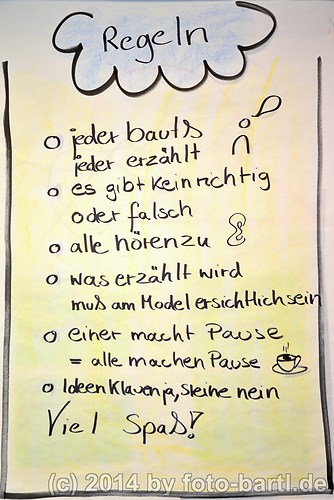 Regeln
o jeder bauts
jeder erzählt
o es gibt kein richtig
oder falsch
o alle hören zu
o was erzählt wird
muß am Model ersichtlich sein
o einer macht Pause
= alle machen Pause
o Ideen klauen ja, Steine nein
Viel Spaß!
(c) 2014 by foto-bartl.de